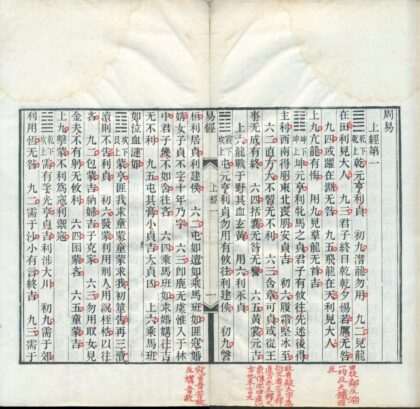 周易
上經第一
䷀乾下乾上 乾元亨利貞 初九潛龍勿用 九二見龍
在田利見大人 九三君子終日乾乾夕惕若厲无咎
九四或躍在淵无咎 九五飛龍在天利見大人
上九亢龍有悔 用九見羣龍无首吉
䷁坤下坤上 坤元亨利牝馬之貞君子有攸往先迷後得
主利西南得朋東北喪朋安貞吉 初六履霜堅冰至
六二直方大不習无不利 六三含章可貞或從王
事无成有終 六四括囊无咎无譽 六五黃裳元吉
上六龍戰于野其血玄黃 用六利永貞
䷂震下坎上 屯元亨利貞勿用有攸往利建侯 初九磐
易經 上經 一
桓利居貞利建侯 六二屯如邅如乘馬班如匪寇婚
媾女子貞不字十年乃字 六三即鹿无虞惟入于林
中君子幾不如舍往吝 六四乘馬班如求婚媾往吉
无不利 九五屯其膏小貞吉大貞凶 上六乘馬班
如泣血漣如
䷃坎下艮上 蒙亨匪我求童蒙童蒙求我初筮告再三瀆
瀆則不告利貞 初六發蒙利用刑人用說桎梏以往
吝 九二包蒙吉納婦吉子克家 六三勿用取女見
金夫不有躬无攸利 六四困蒙吝 六五童蒙吉
上九擊蒙不利為寇利禦寇
䷄乾下坎上 需有孚光亨貞吉利涉大川 初九需于郊
利用恆无咎 九二需于沙小有言終吉 九三需于